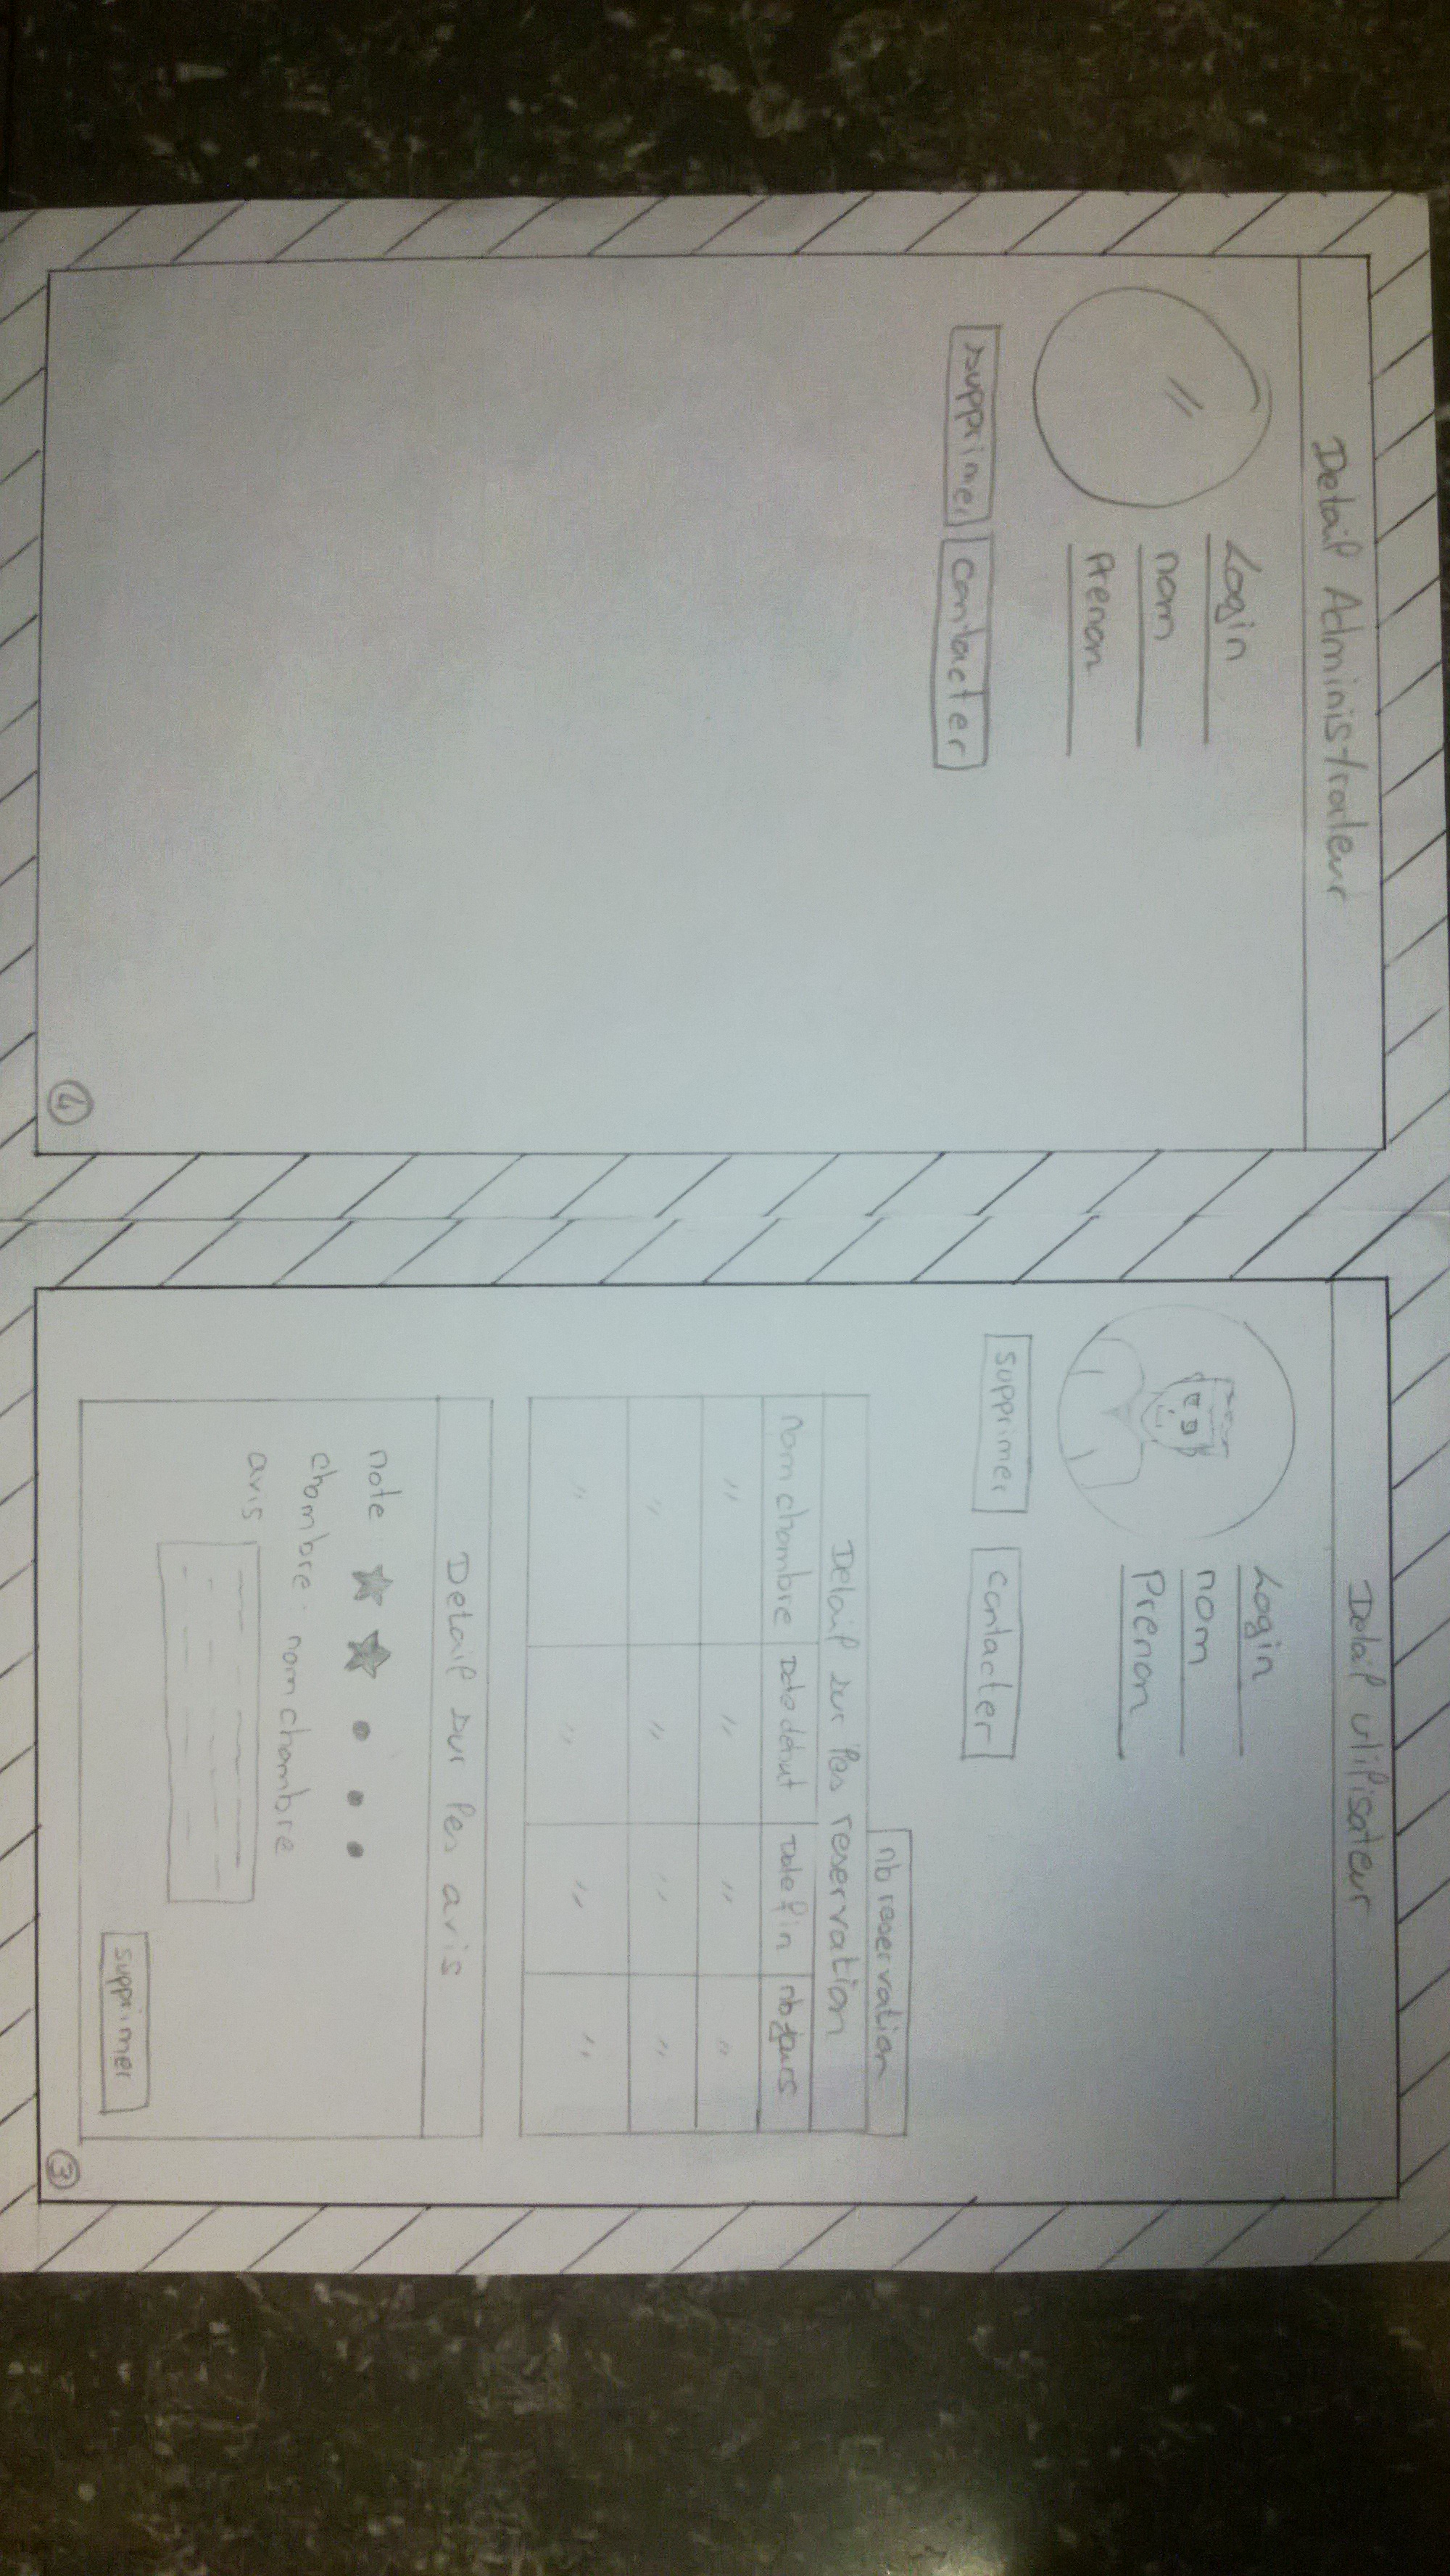 Detail Administrateur
Login
nom
Prenon
supprimer
contacter
4
Detail utilisateur
Login
nom
Prenon
supprimer
contacter
nb reservation
Detail sur les reservation
nom chambre Date debut Date fin nb jours
" " " "
" " " "
" " " "
Detail sur les avis
note
chambre : nom chambre
avis
supprimer
3